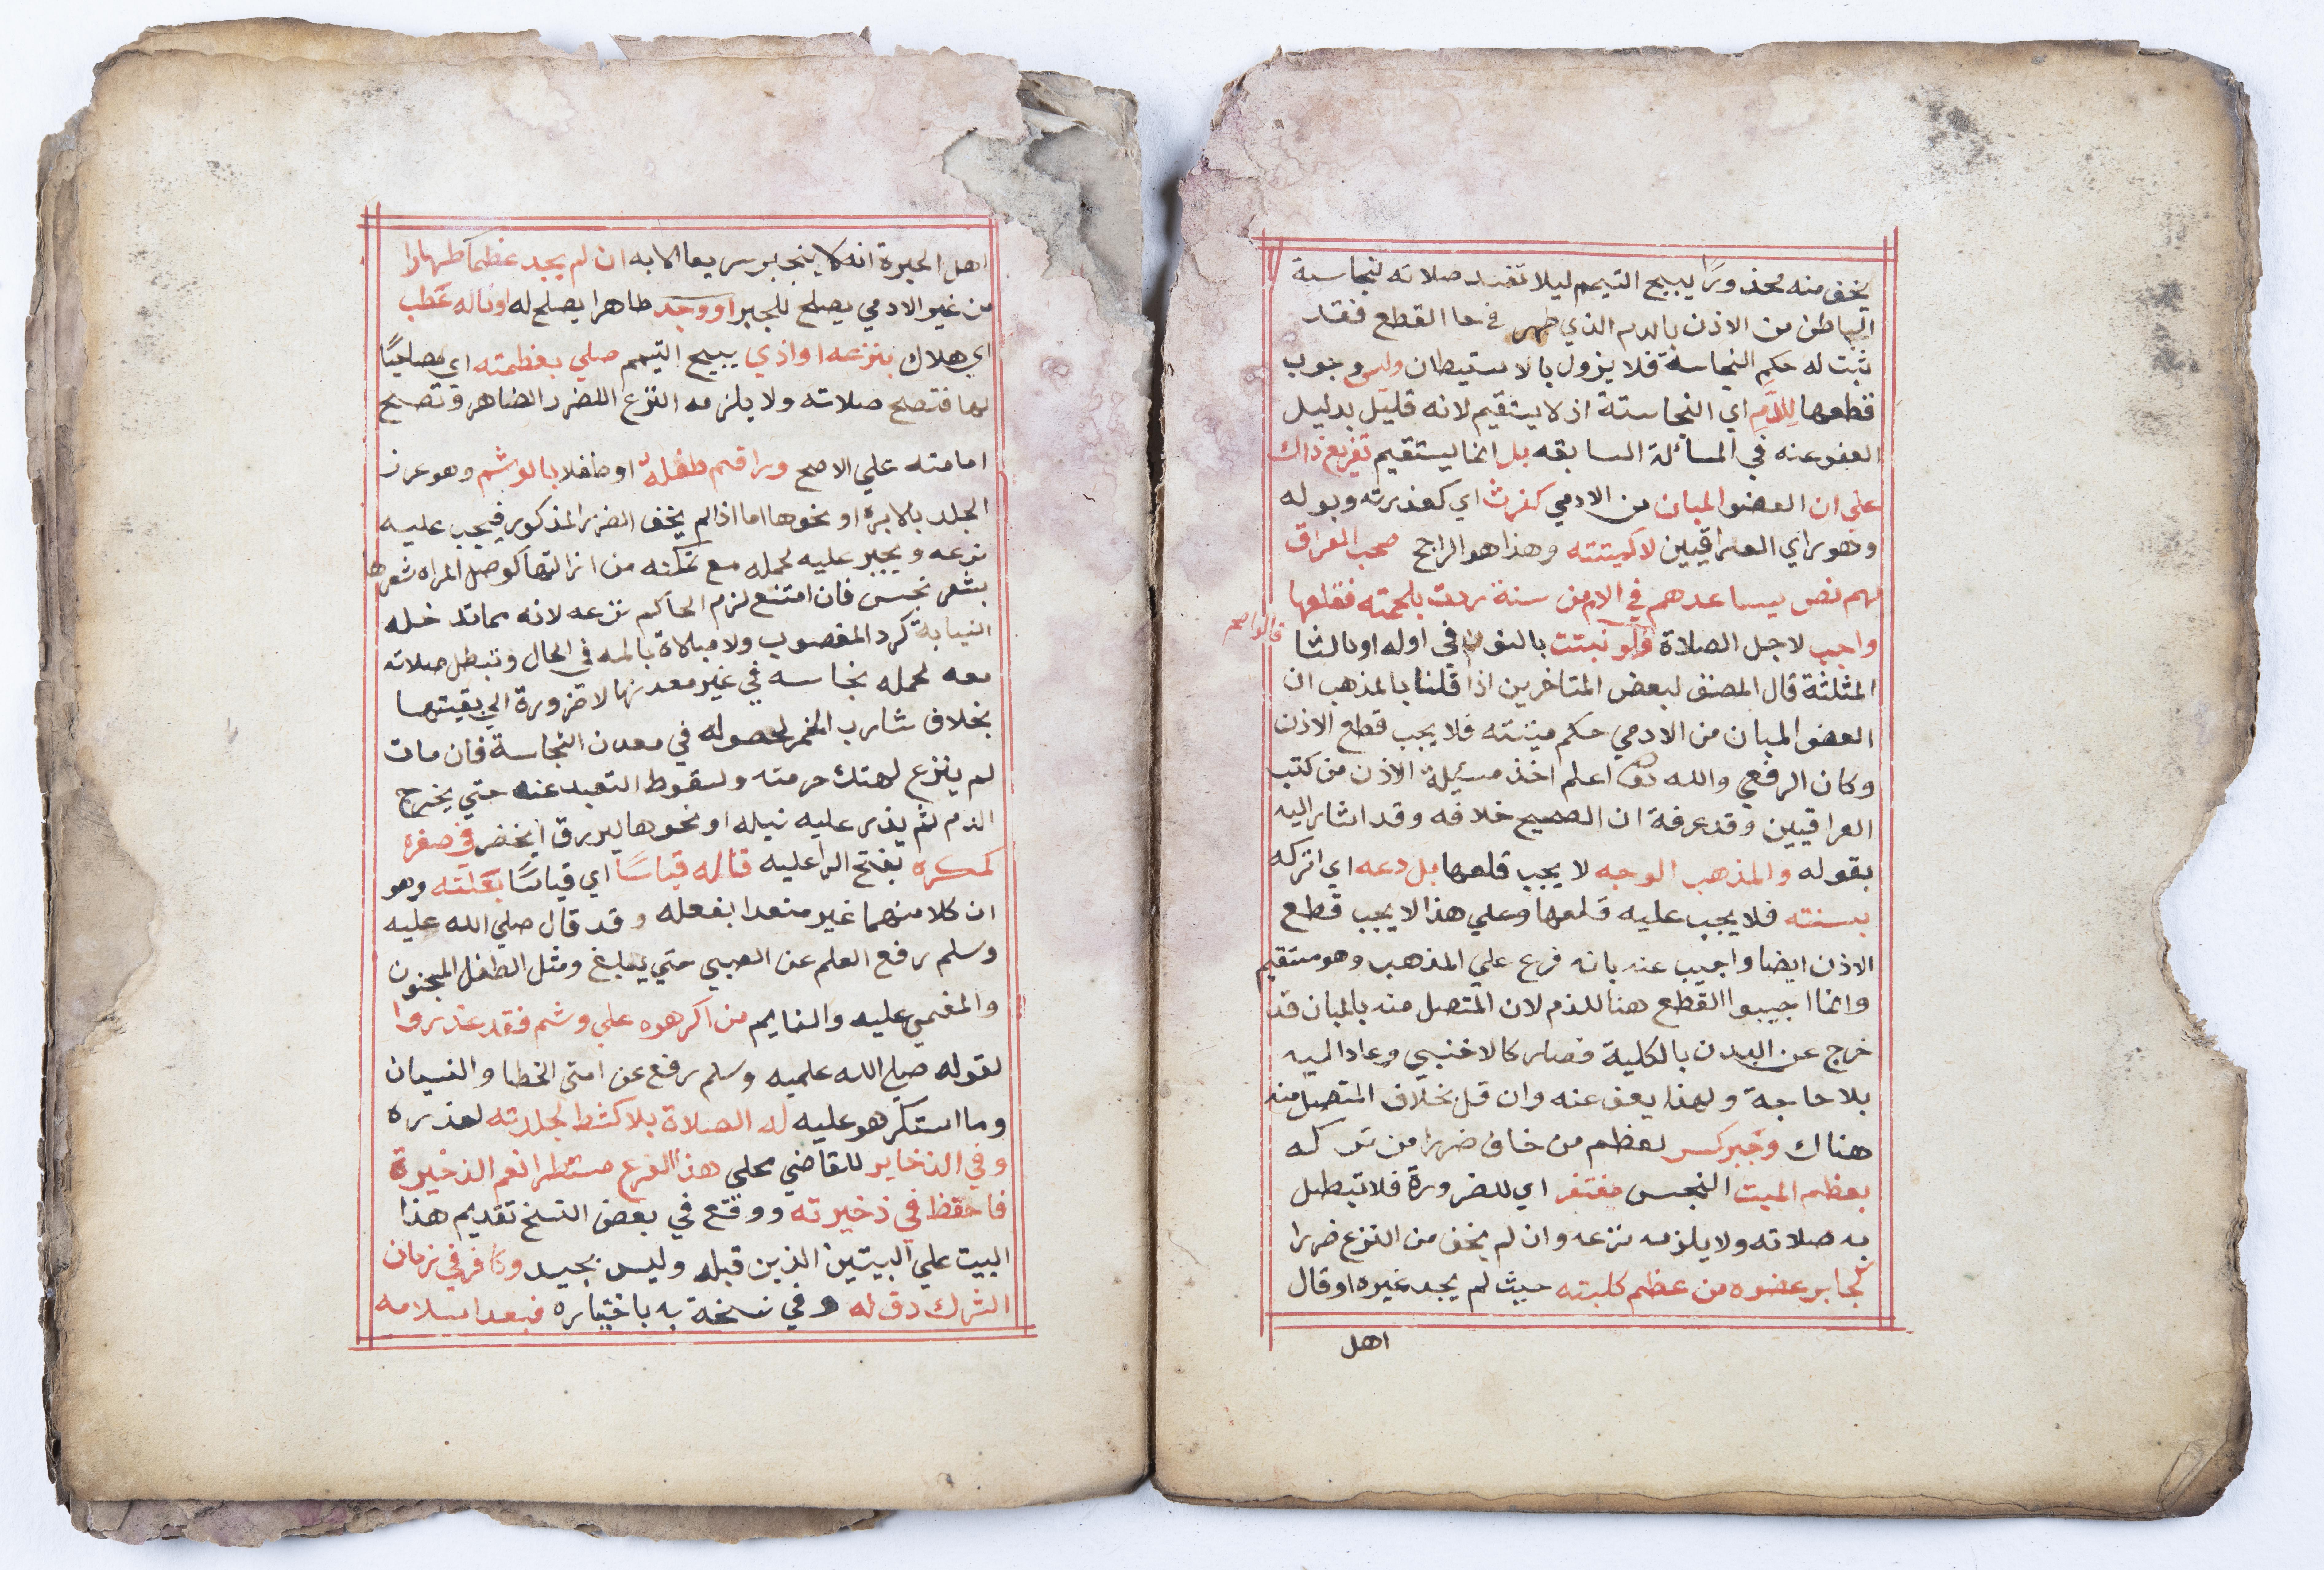 يخف منه محذورًا يبيح التيمم ليلا تفسد صلاته لنجاسة
الباطن من الاذن بالدم الذي ظهر في حا القطع فقد
ثبت له حكم النجاسة فلا يزول بالاستبطان وليس وجوب
قطعها للدم اي النجاستة اذ لا يستقيم لانه قليل بدليل
العفو عنه في المسائلة السابقه بل انما يستقيم تفريع ذاك
على ان العضو المبان من الادمي كفرث اي كعذرته وبوله
وهو راي العراقيين لا كميتته وهذا هو الراجح صحب العراق
لهم نص يساعدهم في الام من سنة ردت بلحمته فقلعها
قالوا صح
واجب لاجل الصلاة ولو نبتت بالنون في اوله او بالثا
المثلثة قال المصنف لبعض المتاخرين اذا قلنا بالمذهب ان
العضو المبان من الادمي حكم ميتته فلا يجب قطع الاذن
وكان الرفعي والله اعلم اخذ مسئلة الاذن من كتب
العراقيين وقد عرفة ان الصحيح خلافه وقد اشار اليه
بقوله والمذهب الوجه لا يجب قلعها بل دعه اي اتركه
بسنته فلا يجب عليه قلعها وعلي هذا لا يجب قطع
الاذن ايضا واجيب عنه بانه فرع علي المذهب وهو مستقيم
وانما اجيبوا القطع هنا للدم لان المتصل منه بالمبان قد
خرج عن البدن بالكلية فصار كالاخنبي وعاد اليه
بلا حاجة ولهذا يعف عنه وان قل بخلاف المتصل منه
هناك وجبر كسر لعظم من خاف ضررا من تركه
بعظم الميت النجس مغتفر اي للضرورة فلا تبطل
به صلاته ولا يلزمه نزعه وان لم يخف من النزع ضررا
كجابر عضوه من عظم كلبته حيث لم يجد غيره او قال
اهل
اهل الخبرة انه لا ينجبر سريعا الا به ان لم يجد عظما طهارا
من غير الادمي يصلح للجبر او وجد طاهرا يصلح له او ناله عطب
اي هلاك بنزعه او اذي يبيح التيمم صلي بعظمته اي مصاحبًا
لها فتصح صلاته ولا يلزمه النزع اللضرر الضاهر وتصح
امامته علي الاصح وراقم طفلة او طفلا بالوشم وهو غرز
الجلد بالابرة او نحوها اما اذا لم يخف الضرر المذكور فيجب عليه
نزعه ويجبر عليه لحمله مع تمكنه من ازالتها كوصل المراه شعرها
بشعر نجس فان امتنع لزم الحاكم نزعه لانه مما تدخله
النيابة كرد المغصوب ولا مبلاة بالمه في الحال وتبطل صلاته
معه لحمله نجاسه في غير معدنها لا ضرورة الي بقيتها
بخلاف شارب الخمر لحصوله في معدن النجاسة فان مات
لم ينزع لهتك حرمته ولسقوط التعبد عنه حتي يخرج
الدم ثم يذر عليه نيله او نحوها ليزرق ا يخضر في صغره
كمكره بفتح الرا عليه قاله قياسًا اي قياسًا بعلته وهو
ان كلا منهما غير متعدا بفعله وقد قال صلي الله عليه
وسلم رفع العلم عن الصبي حتي يبلغ ومثل الطفل المجنون
والمغمي عليه والنايم من اكرهوه علي وشم فقد عذروا
لقوله صلي الله علميه وسلم رفع عن امتي الخطا والنسيان
وما استكرهو عليه له الصلاة بلا كشط لجلدته لعذره
وفي الذخاير للقاضي محلي هذا الفرع مستطرا نعم الذخيرة
فاحفظ في ذخيرته ووقع في بعض النسخ تقديم هذا
البيت علي البيتين الذين قبله وليس بجيد وكافر في زمان
الشرك دق له وفي نسخة به باختياره فبعد اسلامه